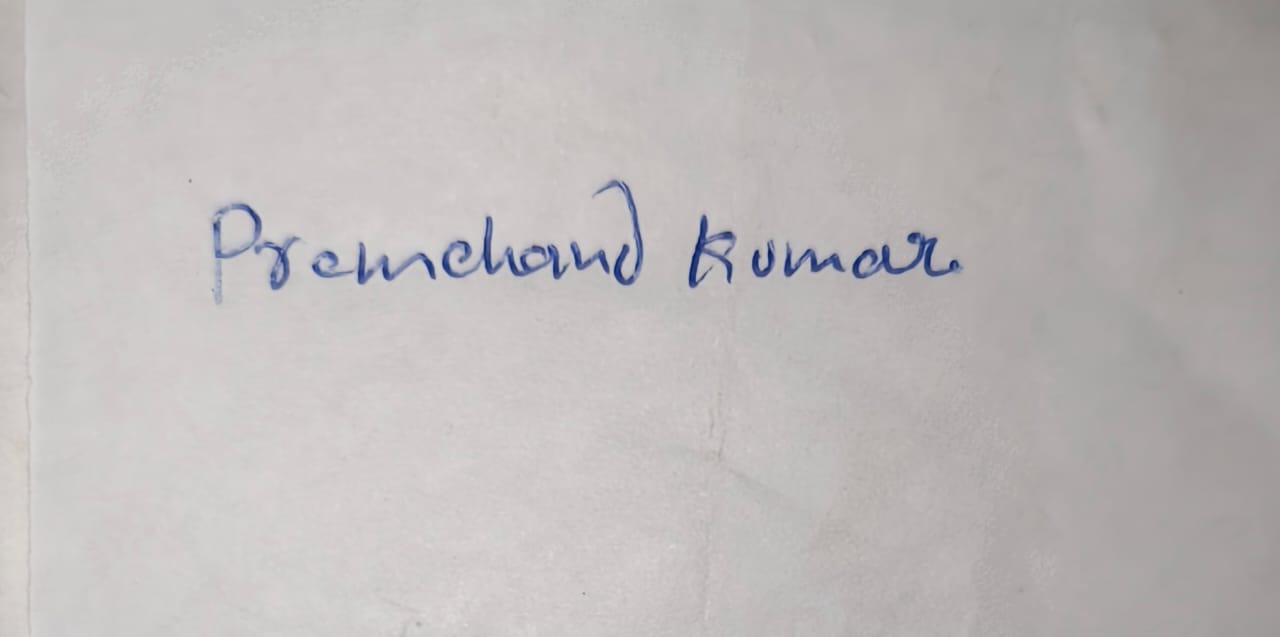 Premchand Kumar